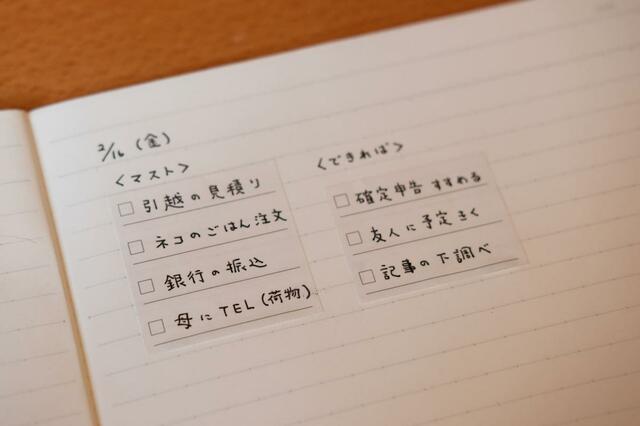 2/16(金)
<マスト>
引越の見積り
ネコのごはん注文
銀行の振込
母にTEL(荷物)
<できれば>
確定申告すすめる
友人に予定きく
記事の下調べ